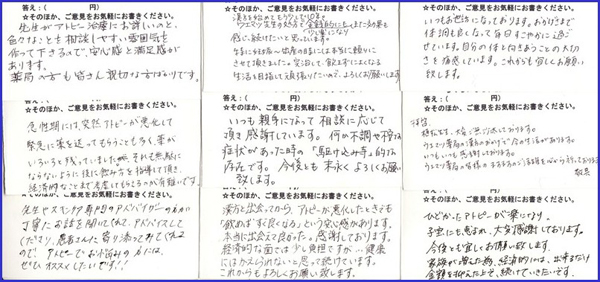 ☆そのほか、ご意見をお気軽にお書きください。
先生がアトピー治療にお詳しいのと、
色々なことも相談しやすい雰囲気も
作って下さるので、安心感と満足感が
あります。
薬局の方も皆さん親切な方ばかりです。
漢方を始めてもうすぐ10年。
ウエマツ先生の
感じ続けたいと思っています。
生活を目指して頑張りたいので、よろしくお願いします
答え:( 円)
☆そのほか、ご意見をお気軽にお書きください。
いつもお世話になっております。おかげさまで
体調も良くなって毎日すこやかに過ごせています。
自分の体と向きあうことの大切
さを痛感しています。これからも宜しくお願い
致します。
答え:( 円)
☆そのほか、ご意見をお気軽にお書きください。
急性期には、突然アトピーが悪化して
緊急に薬を送ってもらうこともあり、薬が
いろいろ残っていましたが、それも無駄に
ならないように後に飲み方を指導して頂き、
経済的なことまで考慮してもらえるのが有難いです
答え:( 円)
☆そのほか、ご意見をお気軽にお書きください。
いつも親身になって相談に応じて
頂き感謝しています。何か不調や様な
症状があった時の「駆け込み寺」的な
存在です。今後とも末永くよろしくお願い
致します。
答え:( 円)
☆そのほか、ご意見をお気軽にお書きください。
いつもいつも感謝しております。
敬具
☆そのほか、ご意見をお気軽にお書きください。
先生やスキンケア専門のアドバイザーの方が
丁寧にお話を聞いてくれて、アドバイスして
くださり、患者さんに寄り添ってみてくれる
ので、アトピーでお悩みの方には、
ぜひオススメしたいです!!
☆そのほか、ご意見をお気軽にお書きください。
漢方と出会ってから、アトピーが悪化したときでも
飲めばすぐ良くなる。という安心感があります。
本当に出会えて良かった。感謝しております。
経済的な面では少し負担ですが…健康
にはかえられないと思って続けています。
これからもよろしくお願い致します。
☆そのほか、ご意見をお気軽にお書きください。
ひどかったアトピーが楽になり、
子宝にも恵まれ、大変感謝しております。
今後とも宜しくお願い致します。
家族が増えた為、経済的には、出来るだけ
金額を抑えた上で、続けていきたいです。